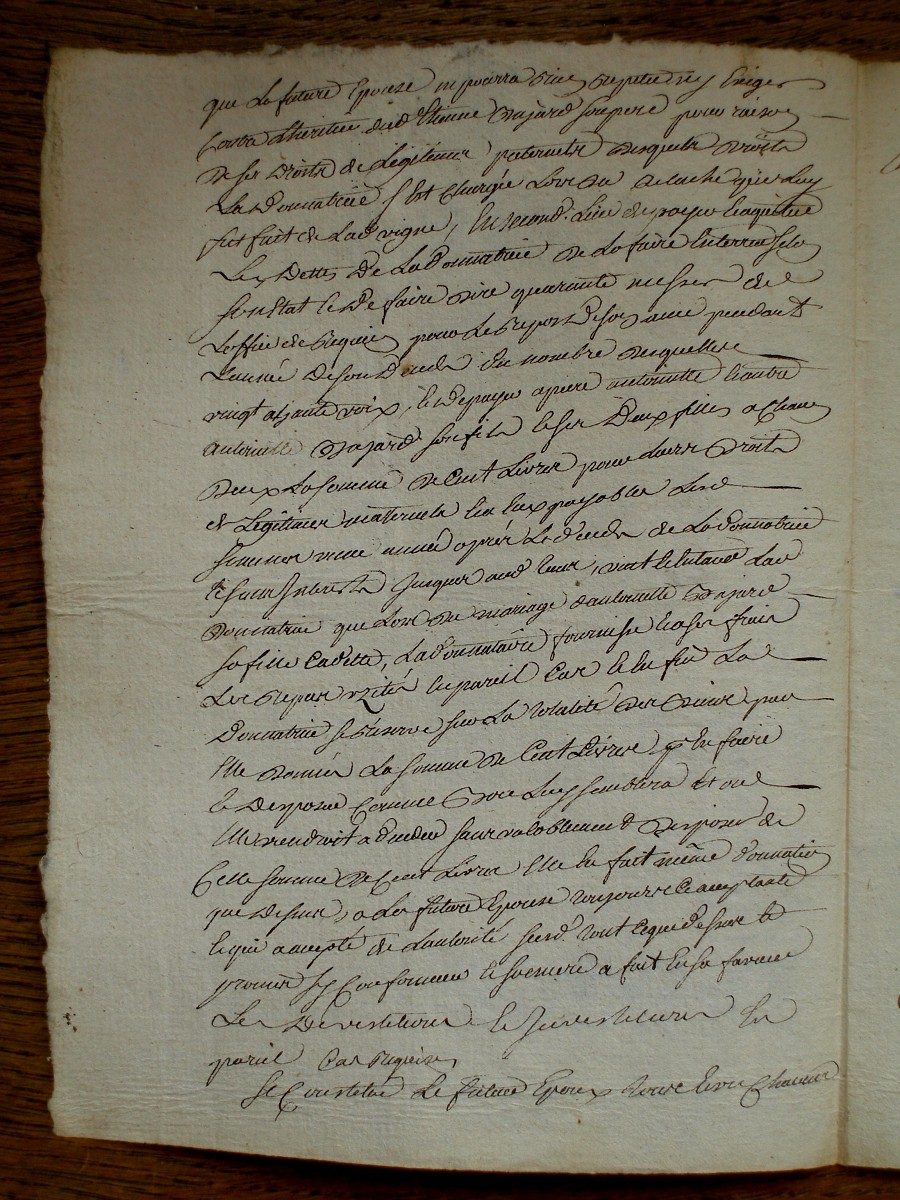 que La future Epouse ny pourra Rien Repeter ny Exiger
contre Lheritiere dud Etienne Bajard son pere pour raison
de ses droits de Legitime paternels desquels droits
La donnatrice sest chargée Lors du relaché quil Luy
fut fait de Lad vigne, En second Lieu de payer
Les Dettes de La donnatrice de La faire Enterrer selon
son Etat et de faire dire quarante messes de
Loffice de Requiem pour Le Repos de son ame pendant
Lannée de son deceds du nombre desquelles
vingt a haute voix, et de payer a pierre antoinette et autre
antoinette Bajard son fils et ses deux filles a chacun
deux La somme de Cent Livres pour Leurs droits
de Legitimes maternels En Eux payables
semmes une année après Le deceds de La donnatrice
et sans Interets Jusques aud tems, voulant et Entend Lad
donnatrice que Lors du mariage dantoinette Bajard
sa fille Cadette, La donnataire fournisse a ses frais
Les Repas usités En pareil Cas et En fin La
donnatrice se Reserve sur La totalité des Biens par
Elle donnés La somme de Cent Livres pr En faire
et disposer Comme Bon Luy semblera Et ou
Elle viendroit a deceder sans valablement disposer de
Cette somme de Cent Livres Elle En fait même donnation
que dessus, a La future Epouse toujours Acceptante
et qui a accepté de Lautorité susd. tout ce que dessus et
promis sy Conformer et sa mere a fait En sa faveur
Les Devestitures et Investitures En
pareil Cas Requises,
Se Constitue Le futur Epoux